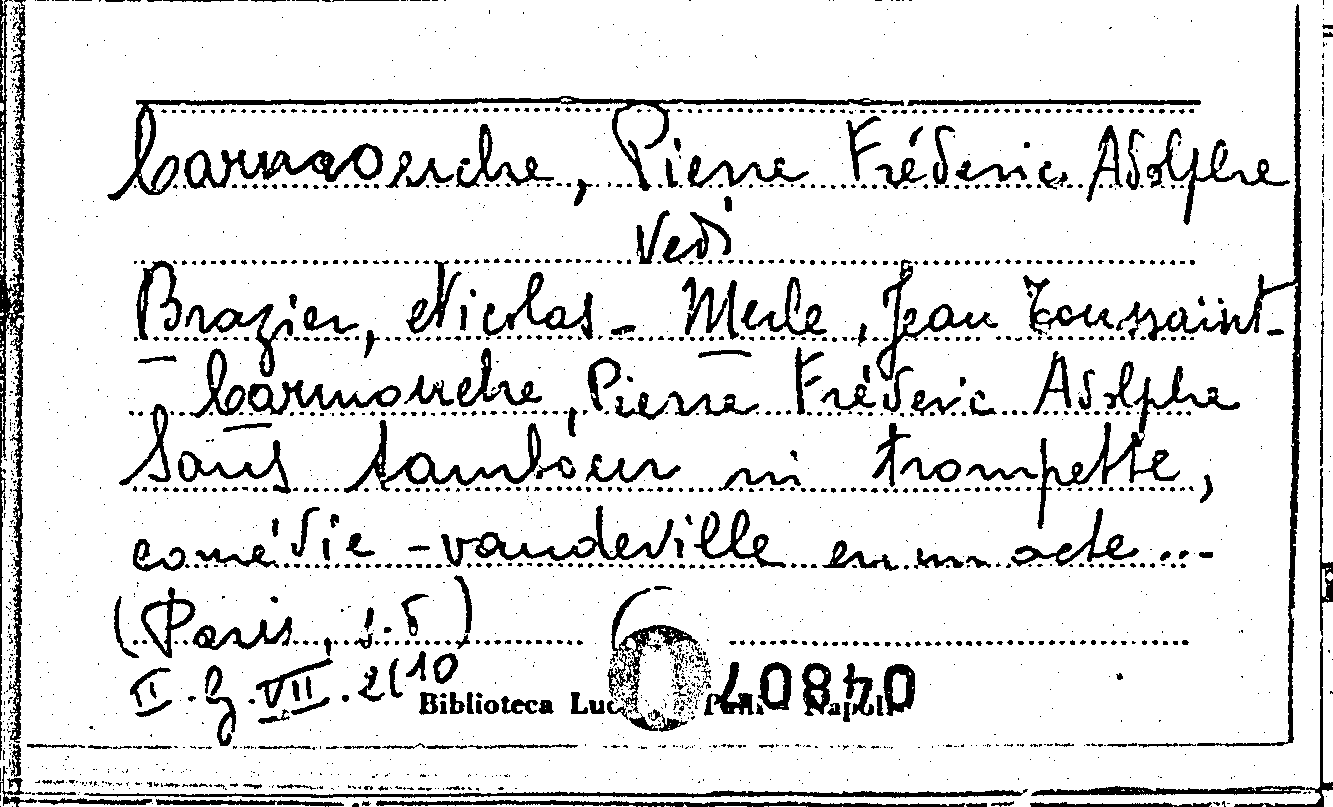 Carmouche, Pierre Fréderic Adolphe
Vedi
Brazier, Nicolas - Merle, Jean Toussaint -
Carmouche, Pierre Fréderic Adolphe
Sans tambour ni trompette,
comédie - vaudeville en un acte...
(Paris, s.d)
II. G. VII. 2(10
Biblioteca Napoli
040840